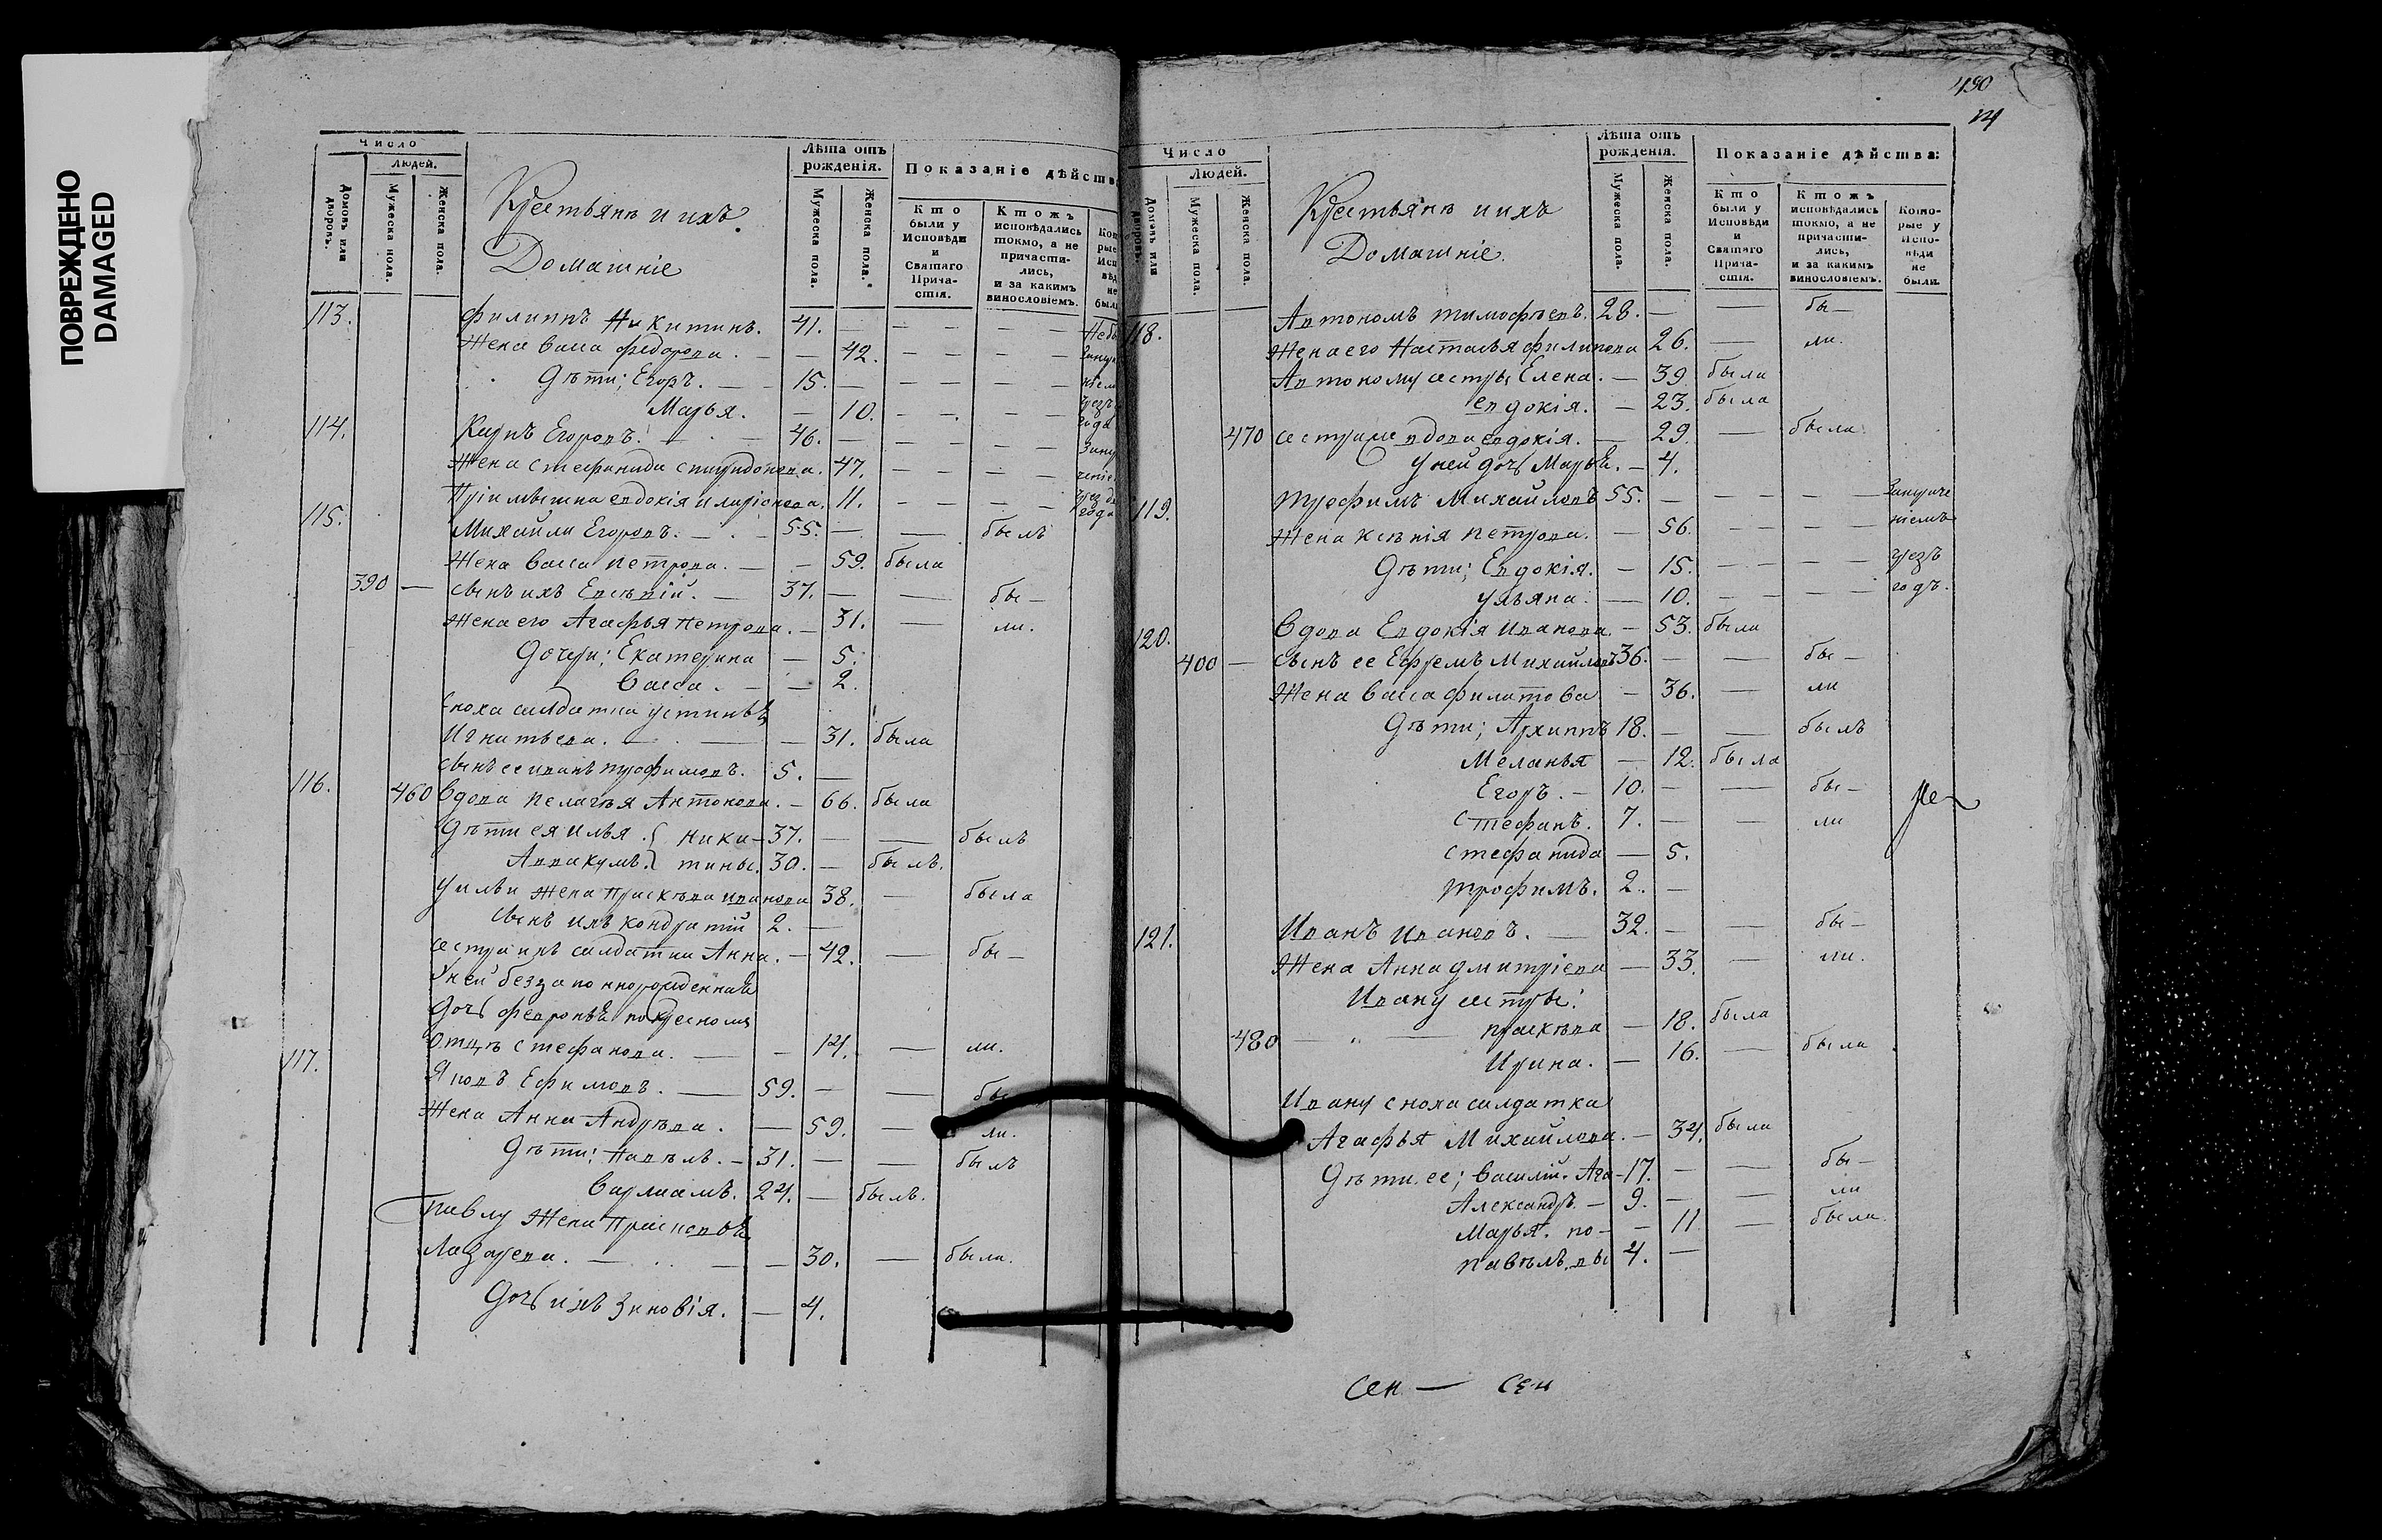 ПОВРЕЖДЕНО
DAMAGED
Число
Людей.
Домовъ или дворовъ.
Мужеска пола.
Женска пола.
Крестьянъ и ихъ
Домашніе
Лѣта отъ рожденія.
Мужеска пола.
Женска пола.
Показаніе дѣйств
Кто были у Исповѣди и Святаго Прича-стія.
Ктожъ исповѣдались токмо, а не причасти-лись, и за какимъ винословіемъ.
113. Филиппъ Никитинъ. 41. —
Жена Васса Федорова. — 42.
Дѣти; Егоръ. — 15. —
Марья. — 10.
114. Карпъ Егоровъ. — 46. —
Жена Стефанида Спиридонова. 47.
Пріимышна Евдокія Иларіонова. 11.
115. Михайли Егоровъ. — 55. — — былъ
Жена Васса Петрова. — 59. была
390 — Сынъ ихъ Евсѣвій. — 37. — — бы —
Жена его Агафья Петрова. — 31. — ли.
Дочери; Екатерина — 5.
Васса. — 2.
Сноха салдатка Устинья
Игнатьева. — 31. была
Сынъ ее Иванъ Трофимовъ. 5. —
116. 460 Вдова Пелагѣя Антонова. — 66. была
Дѣти ея Илья. Ники- 37. — — былъ
Аввакумъ. тины. 30. — былъ.
У Ильи жена Прасковѣа Иванова 38. — была
Сынъ ихъ Кондратій 2. —
Сестра ихъ салдатка Анна. — 42. — бы —
У ней беззаконнорожденная
Дочь Февронья по крестному
Отцѣ Стефанова. — 14. — ли.
117. Яковъ Ефимовъ. — 59. — — бы
Жена Анна Андрѣева. — 59. — ли.
Дѣти; Павѣлъ. — 31. — — былъ
Варлаамъ. 24. — былъ.
Павлу жена Прасковья
Лазарева. — 30. — была.
Дочь ихъ Зиновія. — 4.
490
Число
Людей.
Домовъ или дворовъ.
Мужеска пола.
Женска пола.
Крестьянъ и ихъ
Домашніе.
Лѣта отъ рожденія.
Мужеска пола.
Женска пола.
Показаніе дѣйства:
Кто были у Исповѣди и Святаго Прича-стія.
Ктожъ исповѣдались токмо, а не причасти-лись, и за какимъ винословіемъ.
Кото-рые у Испо-вѣди не были.
118. Автономъ Тимофѣевъ. 28. — бы —
Жена его Настасья Филипова 26. — ли.
Автоному сестры Елена. — 39. была
Евдокія. — 23. была
470 Сестра ме вдова Евдокія. — 29. — была
У ней дочь Марья. — 4.
119. Трофимъ Михайловъ 55. —
Жена Ксенія Петрова. — 56.
Дѣти; Евдокія. — 15. — чрезъ
Ульяна. — 10. — годъ.
120. Вдова Евдокія Иванова. — 53. была
400 — Сынъ ее Ефремъ Михайловъ 36. — — бы —
Жена Васса Филатова — 36. — ли
Дѣти; Архиппъ 18. — — былъ
Меланья — 12. была
Егоръ. — 10. — — бы —
Стефанъ. 7. — — ли
Стефанида — 5.
Трофимъ. 2. —
121. Иванъ Ивановъ. — 32. — — бы —
Жена Анна Дмитріева — 33. — ли.
Ивану сестры:
Прасковѣа — 18. была
480 Ирина. — 16. — была
Ивану сноха салдатка
Агафья Михайлова. — 34. была
Дѣти ее; Василій. Ага- 17. — — бы —
Александръ. — 9. — — ли
Марья. по- — 11. — была.
Павѣлъ. вы 4. —
Сен — Сен